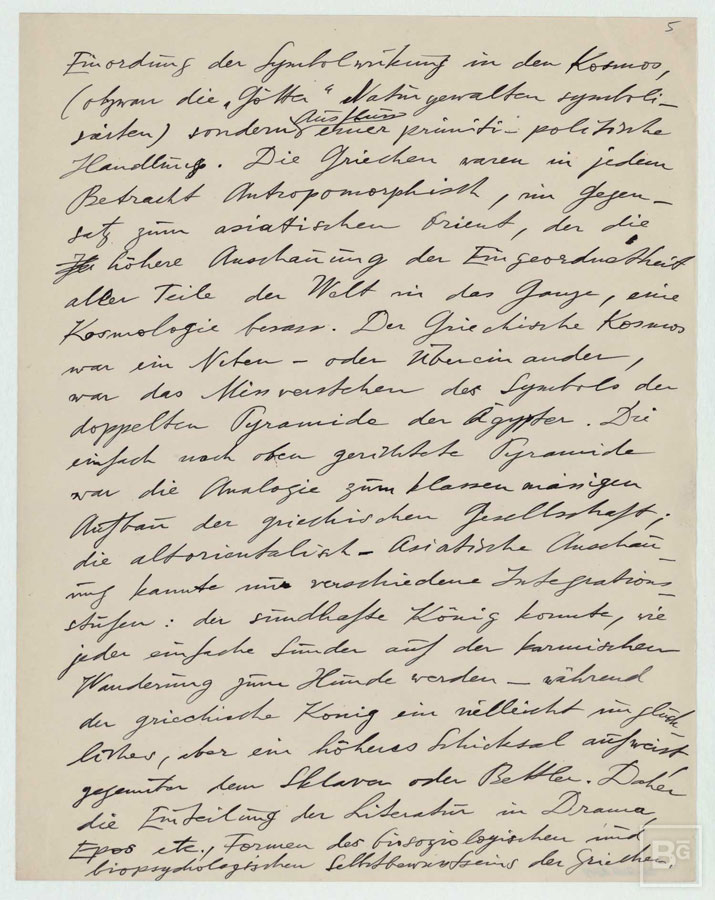 5
Einordnung der Symbolwirkung in den Kosmos,
(obzwar die „Götter“ Naturgewalten symboli-
sierten) sondern Ausfluss einer primitiv-politische
Handlung. Die Griechen waren in jedem
Betracht Antropomorphisch, im Gegen-
satz zum asiatischen Orient, der die
höhere Anschauung der Eingeordnetheit
aller Teile der Welt in das Ganze, eine
Kosmologie besass. Der Griechische Kosmos
war ein Neben- oder Übereinander,
war das Missverstehen des Symbols der
doppelten Pyramide der Ägypter. Die
einfach nach oben gerichtete Pyramide
war die Analogie zum klassenmässigen
Aufbau der griechischen Gesellschaft;
die altorientalisch-Asiatische Anschau-
ung kannte nur verschiedene Integrations-
stufen: der sündhafte König konnte, wie
jeder einfache Sünder auf der karmischen
Wanderung zum Hunde werden – während
der griechische König ein vielleicht unglück-
liches, aber ein höheres Schicksal aufweist
gegenüber dem Sklaven oder Bettler. Daher
die Einteilung der Literatur in Drama,
Epos etc., Formen des biosoziologischen und
biopsychologischen Selbstbewusstseins der Griechen,
BG